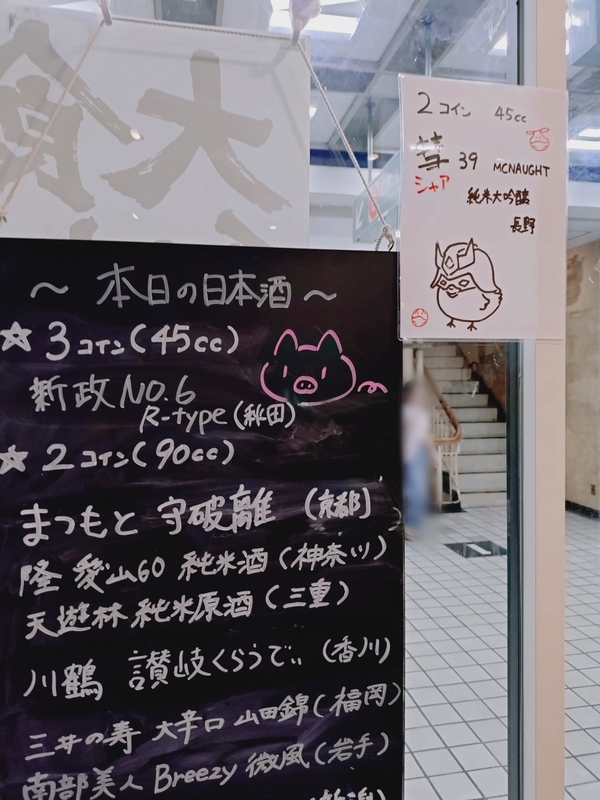 大
~ 本日の日本酒 ~
☆ 3コイン(45cc)
新政 NO.6
R-type(秋田)
☆ 2コイン(90cc)
まつもと 守破離 (京都)
隆 愛山60 純米酒(神奈川)
天遊林 純米原酒(三重)
川鶴 讃岐くらうでぃ (香川)
三井の寿 大辛口 山田錦(福岡)
南部美人 Breezy 微風(岩手)
2コイン 45cc
39 MCNAUGHT
シャア
純米大吟醸
長野